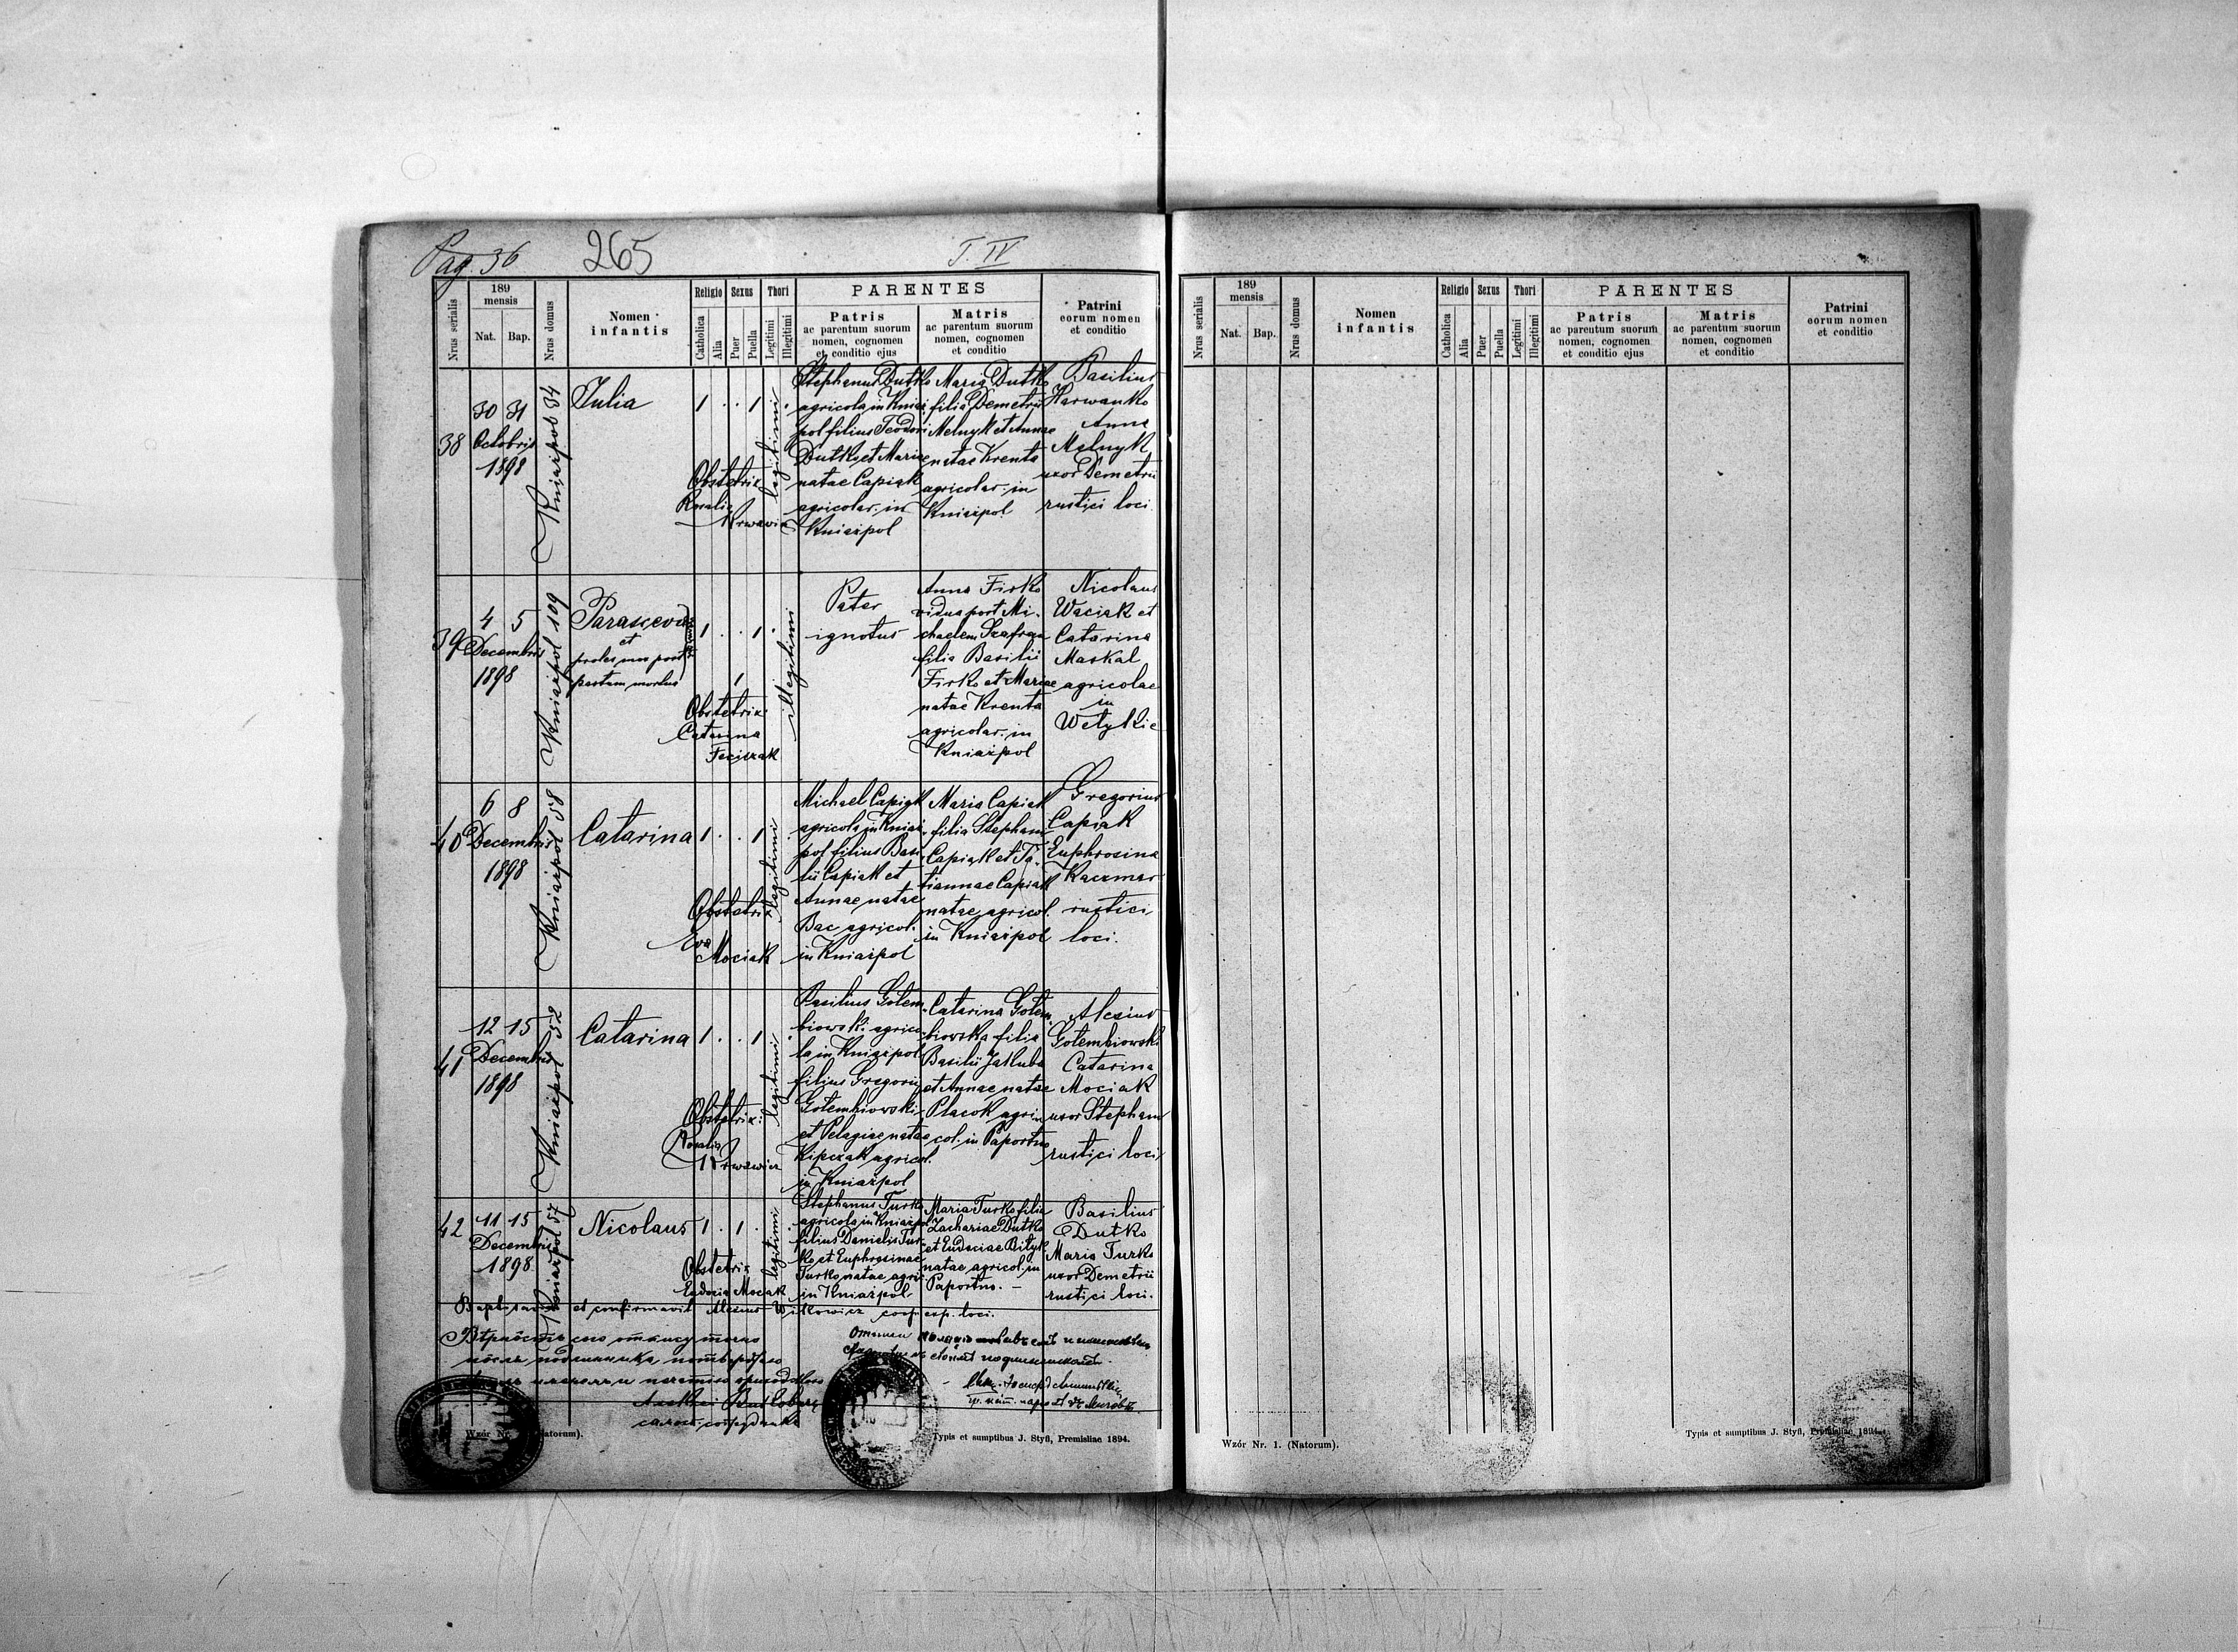 Pag. 36 265 T. IV
Nrus serialis
189
mensis
Nat. Bap.
Nrus domus
Nomen
infantis
Religio Sexus Thori
Catholica Alia Puer Puella Legitimi Illegitimi
PARENTES
Patris
ac parentum suorum
nomen, cognomen
et conditio ejus
Matris
ac parentum suorum
nomen, cognomen
et conditio
Patrini
eorum nomen
et conditio
38
30 31
Octobris
1898
Kniażpol 34
Julia
1 . . 1 .
legitimi
Obstetrix
Rosalia
Krwawicz
Stephanus Dutko
agricola in Kniaż
pol filius Teodori
Dutko et Mariae
natae Capiak
agricolar. in
Kniażpol
Maria Dutko
filia Demetrii
Melnyk et Annae
natae Krenta
agricolar. in
Kniażpol
Basilius
Harwanko
Anna
Melnyk
uxor Demetrii
rustici loci
39
4 5
Decembris
1898
Kniażpol 109
Parasceva
et
proles mas post
partum mortus
1 . . 1 .
1
illegitimi
Obstetrix
Catarina
Feciczak
Pater
ignotus
Anna Firko
vidua post Mi-
chaelem Szafran
filia Basilii
Firko et Mariae
natae Krenta
agricolar. in
Kniażpol
Nicolaus
Waciak et
Catarina
Maskal
agricolae
in
Wełykie
40
6 8
Decembris
1898
Kniażpol 58
Catarina
1 . . 1 .
legitimi
Obstetrix
Eva
Mociak
Michael Capiak
agricola in Kniaż-
pol filius Basi-
lii Capiak et
Annae natae
Bac agricol.
in Kniażpol
Maria Capiak
filia Stephani
Capiak et Ta-
tiannae Capiak
natae agricol.
in Kniażpol
Gregorius
Capiak
Euphrosina
Kaczmar
rustici
loci.
41
12 15
Decembris
1898
Kniażpol 32
Catarina
1 . . 1 .
legitimi
Obstetrix:
Rosalia
Krwawicz
Basilius Gołem-
biowski agrico-
la in Kniażpol
filius Gregorii
Gołembiowski
et Pelagiae natae
Kipczak agricol.
in Kniażpol
Catarina Gołem-
biowska filia
Basilii Jatłuba
et Annae natae
Placok agri-
col. in Paportno
Alexius
Gołembiowski
Catarina
Mociak
uxor Stephani
rustici loci
42
11 15
Decembris
1898
Kniażpol 57
Nicolaus
1 . 1 .
legitimi
Obstetrix
Eudocia Mociak
Stephanus Turko
agricola in Kniażpol
filius Danielis Tur-
ko et Euphrosinae
Turko natae agri.
in Kniażpol
Maria Turko filia
Zachariae Dutko
et Eudociae Bityk
natae agricol. in
Paportno. –
Basilius
Dutko
Maria Turko
uxor Demetrii
rustici loci.
Baptisavit et confirmavit Alexius Witkowicz coop. exp. loci.
Wzór Nr.
Typis et sumptibus J. Styfi, Premisliae 1894.
Nrus serialis
189
mensis
Nat. Bap.
Nrus domus
Nomen
infantis
Religio Sexus Thori
Catholica Alia Puer Puella Legitimi Illegitimi
PARENTES
Patris
ac parentum suorum
nomen, cognomen
et conditio ejus
Matris
ac parentum suorum
nomen, cognomen
et conditio
Patrini
eorum nomen
et conditio
Wzór Nr. 1. (Natorum).
Typis et sumptibus J. Styfi, Premisliae 1894.